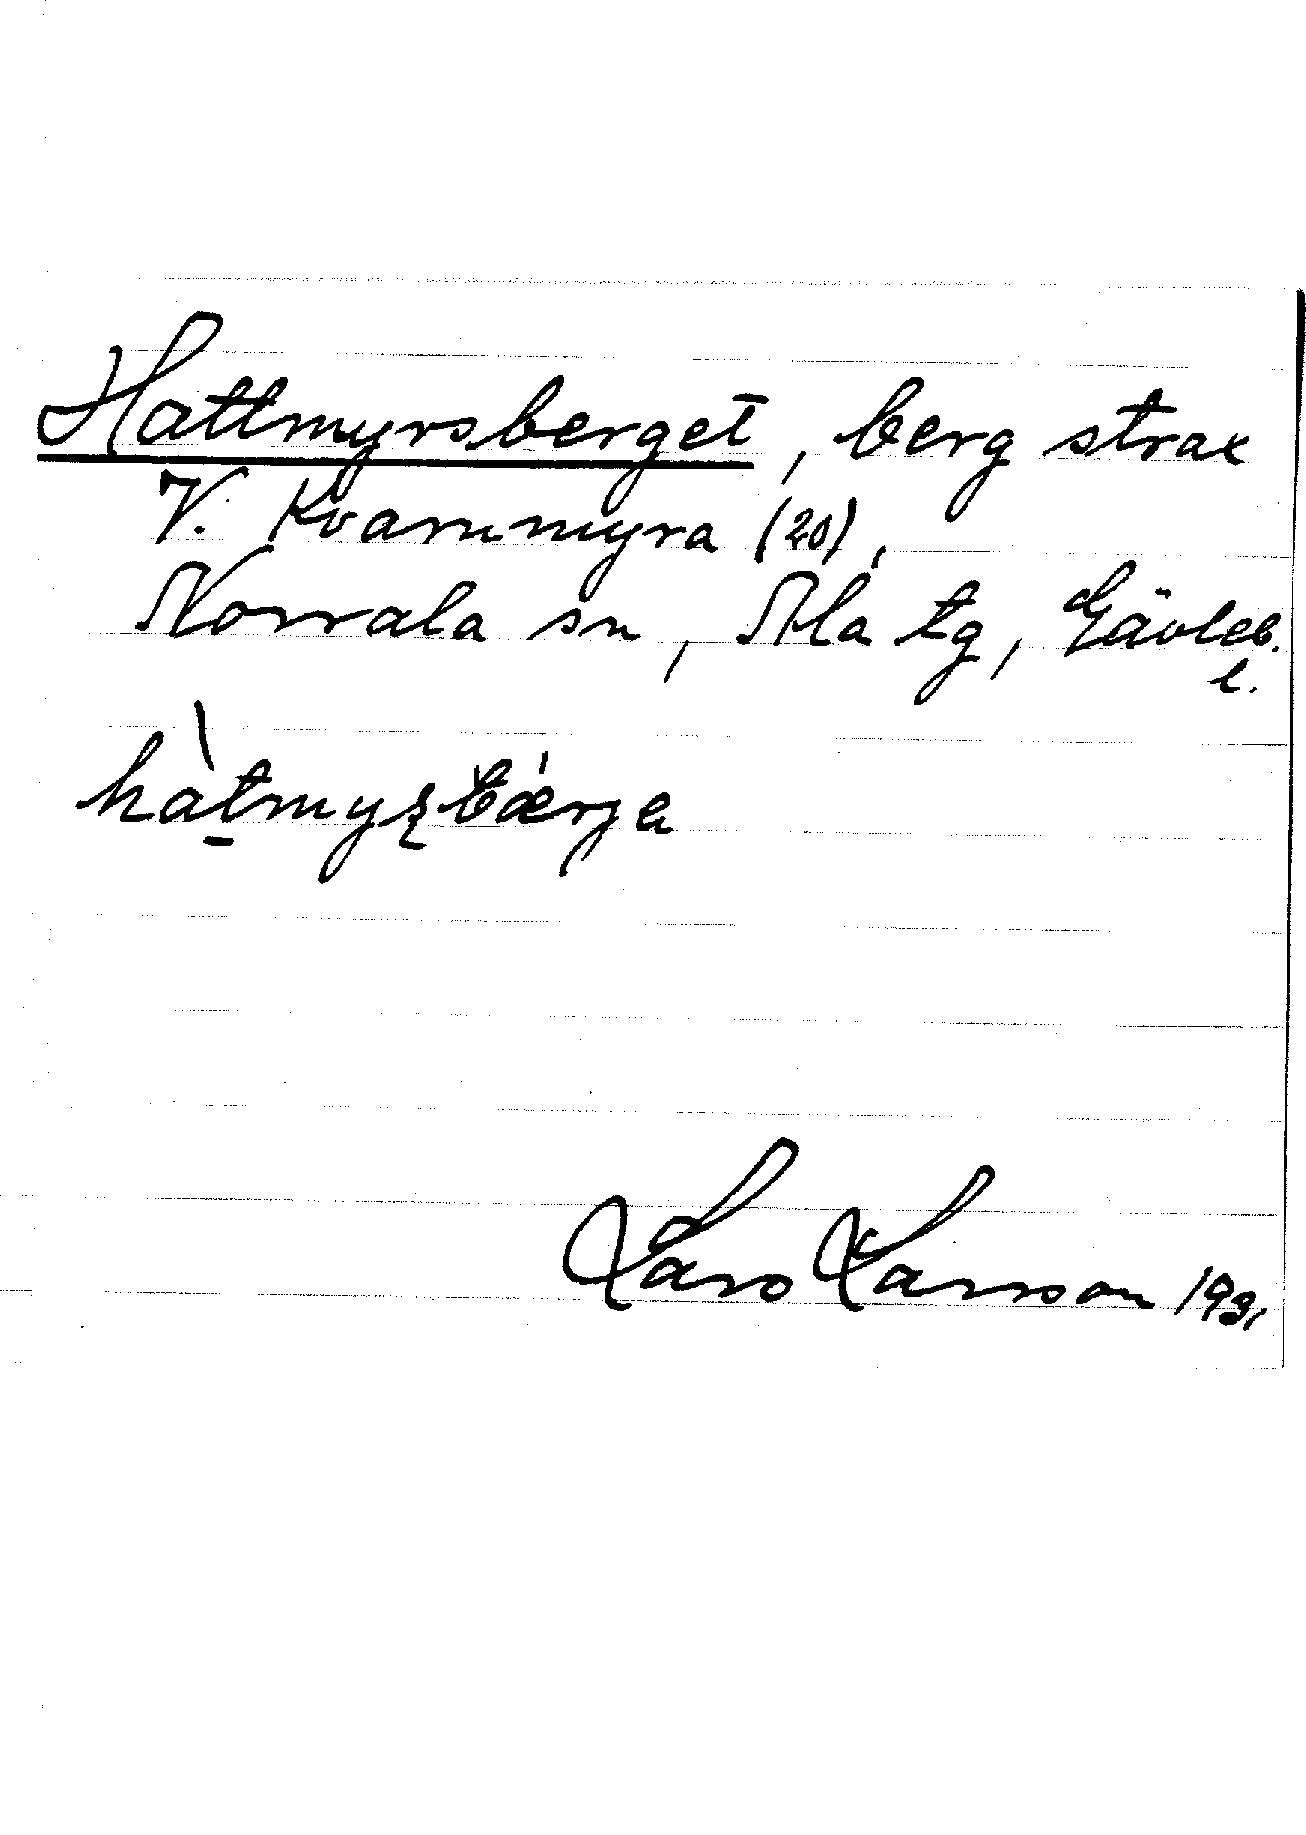 Hattmyrsberget, berg strax
V. Kvarnmyra (20),
Norrala sn, Ala tg, Gävleb.
l.
hàtmyʂbærja
Lars Larsson 1931